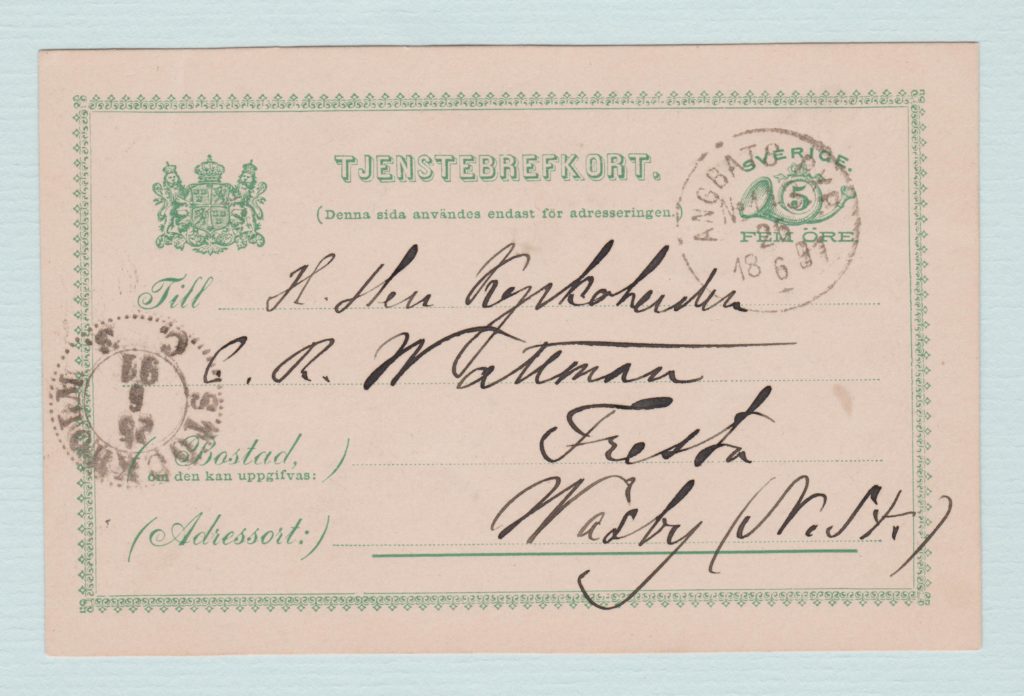 TJENSTEBREFKORT.
(Denna sida användes endast för adresseringen.)
SVERIGE
5
FEM ÖRE
ANGBATS PXP
No
26
18 6 91
Till H. Herr Kyrkoherden
C. R. Wattman
Fresta
(Bostad,)
om den kan uppgifvas:
(Adressort:) Wäsby (N. St.)
STOCKHOLM
C. 3
26
6
91